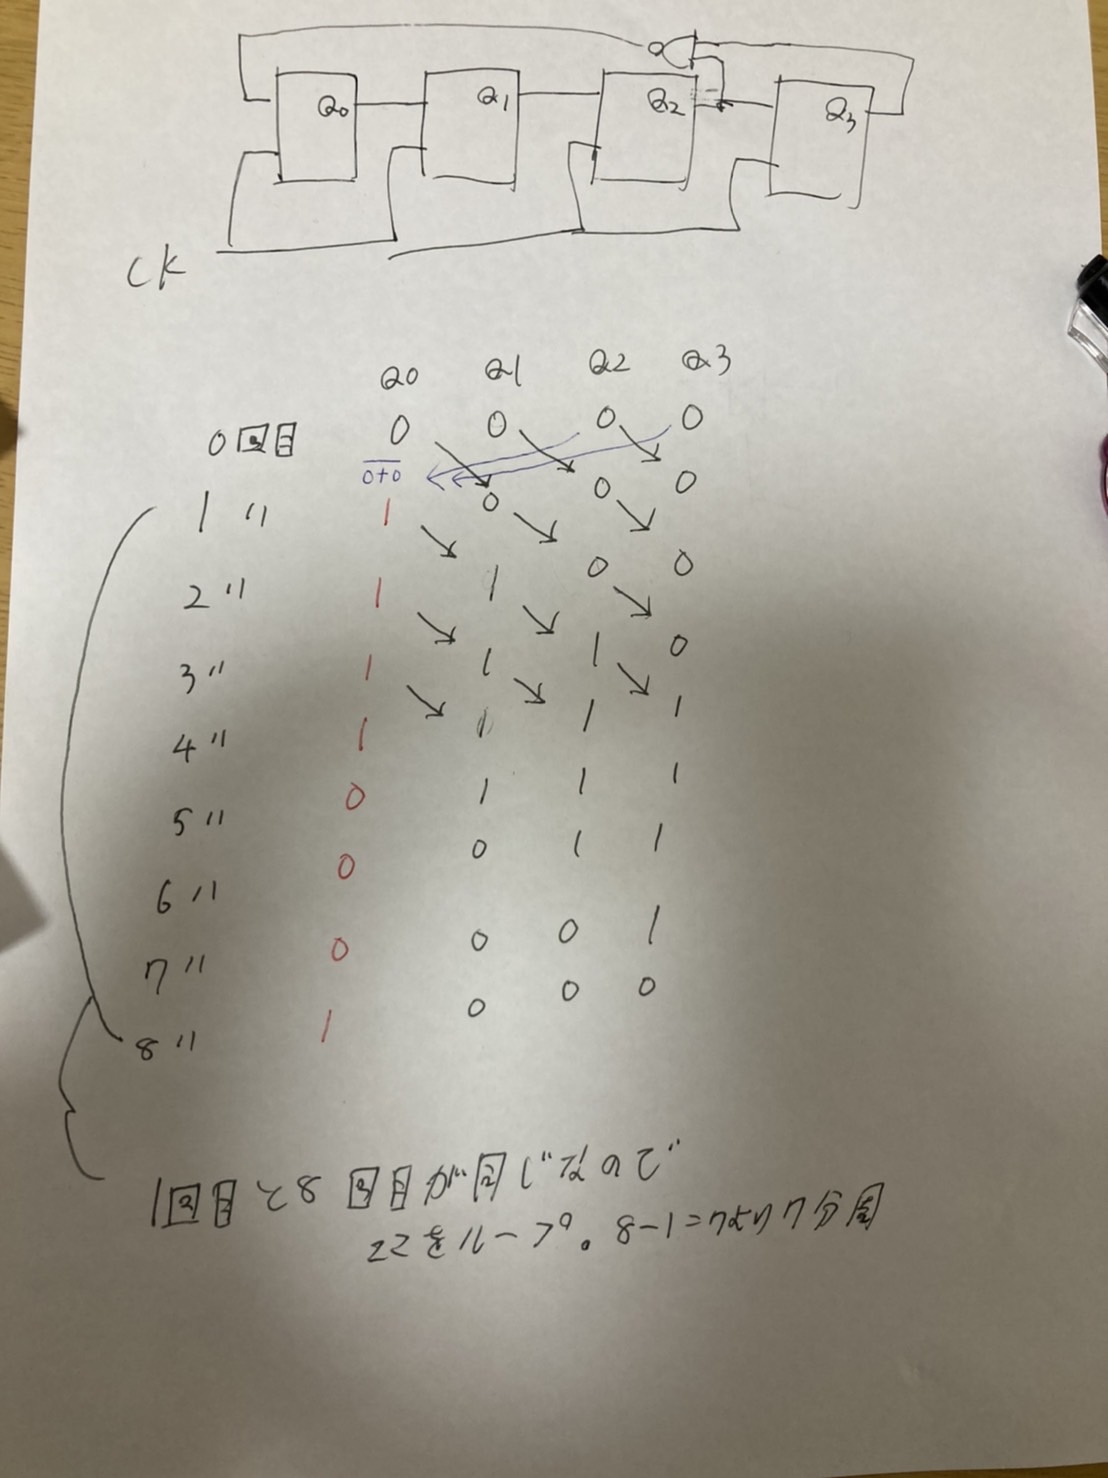 Q0 Q1 Q2 Q3
CK
Q0 Q1 Q2 Q3
0回目 0 0 0 0
0+0
1 〃 1 0 0 0
2 〃 1 1 0 0
3 〃 1 1 1 0
4 〃 1 1 1 1
5 〃 0 1 1 1
6 〃 0 0 1 1
7 〃 0 0 0 1
8 〃 1 0 0 0
1回目と8回目が同じなので
ここをループ。8-1=7より7分周